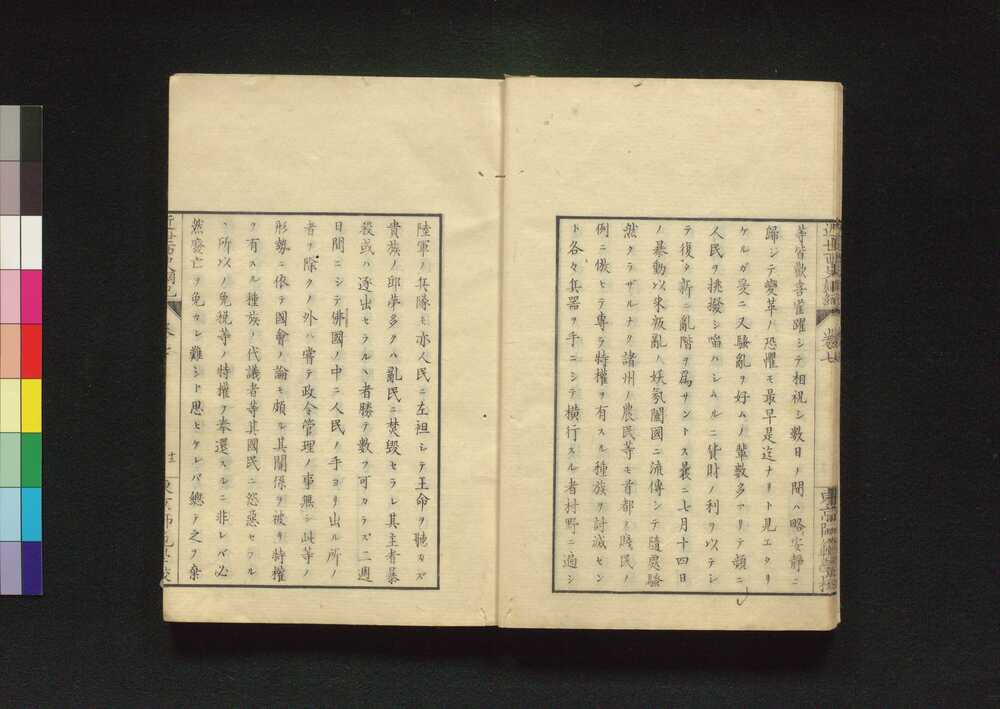 等皆歡喜雀躍シテ相祝シ数日ノ間ハ略安静ニ
歸シテ變革ノ恐懼モ最早是迄ナリト見エタリ
ケルガ爰ニ又騒亂ヲ好ムノ輩數多アリテ頻ニ
人民ヲ挑撥シ啗ハシムルニ貨財ノ利ヲ以テシ
テ復タ新ニ亂階ヲ爲サントス蓋ニ七月十四日
ノ暴動以來叛亂ノ妖氛闔國ニ流傳シテ隨處騒
然タラザルナク諸州ノ農民等モ首都ノ賤民ノ
例ニ倣ヒテ專ラ特權ヲ有スル種族ヲ討滅セン
ト各々兵器ヲ手ニシテ橫行スル者村野ニ過シ
陸軍ノ兵隊モ亦人民ニ左袒シテ王命ヲ聴カズ
貴族ノ邸多クハ亂民ニ焚毀セラレ其主者暴
殺或ハ逐出セラルヽ者勝テ數フ可カラズ二週
日間ニシテ佛國ノ中ニ人民ノ手ヨリ出ル所ノ
者ヲ除クノ外ハ嘗テ政令管理ノ事無シ此等ノ
形勢ニ依テ國會ノ論モ頗ル其關係ヲ被リ特權
ヲ有スル種族ノ代議者等其國民ニ怨惡セラル
ヽ所以ノ免税等ノ特權ヲ奉還スルニ非レバ必
然廢亡ヲ免カレ難シト思ヒケレバ總テ之ヲ棄
近世西史綱紀
卷七
十三
東京師範學校